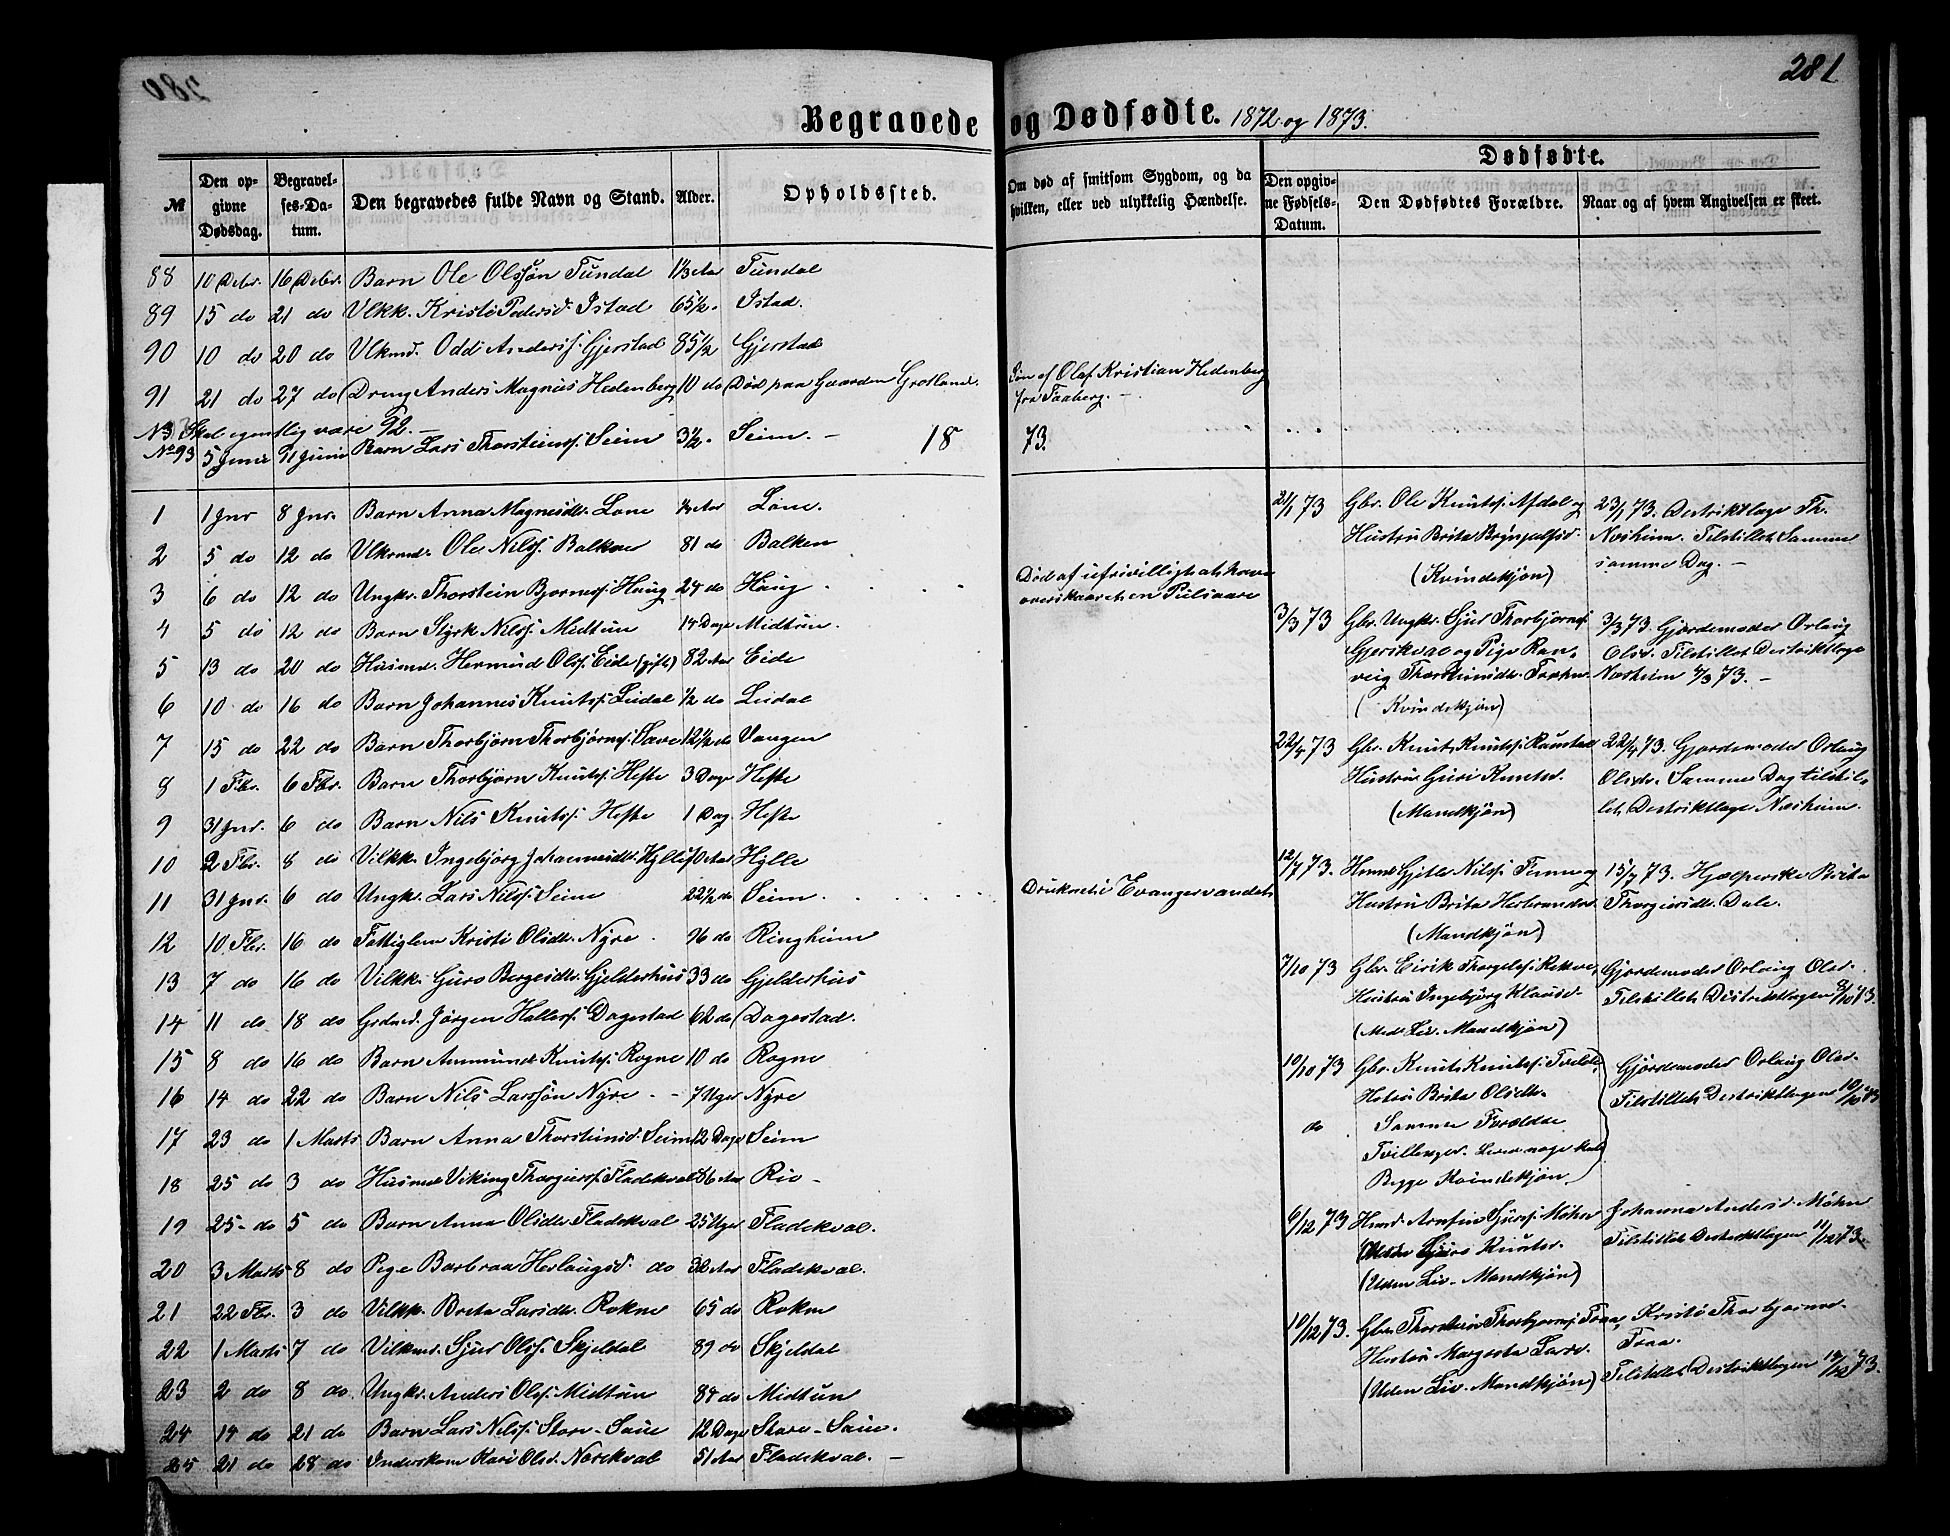 280
281
Begravede og Dødfødte. 1872 og 1873.
№
Den opgivne Dødsdag.
Begravelses-Datum.
Den begravedes fulde Navn og Stand.
Alder.
Opholdssted.
Om død af smitsom Sygdom, og da hvilken, eller ved ulykkelig Hændelse.
Dødfødte.
Den opgivne Fødsels-Datum.
Den Dødfødtes Forældre.
Naar og af hvem Angivelsen er skeet.
88 10 Decbr. 16 Decbr. Barn Ole Olssøn Tundal 1⅓ Aar Tundal
89 15 do 21 do Vlkk. Kristi Pedersd. Istad 65½ Istad.
90 10 do 20 do Vlkmd. Odd Anderss. Gjerstad 85½ Gjerstad
91 21 do 27 do Dreng Anders Magnus Hedenberg 10 do Død paa Gaarden Grotland. Søn af Olaf Kristian Hedenberg
fra Faaberg. —
N3 Skal egentlig være 92. —
No 93 5 Juni 11 Juni Barn Lars Thorsteinss. Seim 3½ Seim. —
1873.
1 1 Jnr 8 Jnr. Barn Anna Magnesdtr. Lone ½ Aar Lone.
2 5 do 12 do Vlkmd. Ole Nilss. Balken 81 do Balken
3 6 do 12 do Ungkr. Thorstein Bjørness. Haug 24 do Haug . . . Død af ufrivilligt at have
overskaaret en Pulsaare
4 5 do 12 do Barn Styrk Nilss. Midtun 14 Dage Midtun.
5 13 do 20 do Husmd. Hermund Olss. Eide (gift) 82 Aar Eide
6 10 do 16 do Barn Johannes Knutss. Lidal ½ do Lidal
7 15 do 22 do Barn Thorbjørn Thorbjørnss. Saue 12½ do Vangen
8 1 Fbr. 6 Fbr. Barn Thorbjørn Knutss. Hefte 3 Dage Hefte
9 31 Jnr. 6 do Barn Nils Knutss. Hefte 1 Dag Hefte
10 2 Fbr. 8 do Vilkk. Ingebjorg Johannesdtr. Hylle 70 Aar Hylle
11 31 Jnr. 6 do Ungkr. Lars Nilss. Seim 22½ do Seim. . . . Druknet i Evangervandet
12 10 Fbr. 16 do Fattiglem Kristi Olsdtr. Nyre 76 do Ringheim
13 7 do 16 do Vilkk. Guro Bergesdtr. Gjelderhus 33 do Gjelderhus
14 11 do 18 do Grdmd. Jørgen Halless. Dagestad 62 do Dagestad.
15 8 do 16 do Barn Ammund Knutss. Rogne 10 do Rogne
16 14 do 22 do Barn Nils Larssøn Nyre — 7 Uger Nyre
17 23 do 1 Marts Barn Anna Thorsteinsd. Seim 12 Dage Seim
18 25 do 3 do Husmd Viking Thorgierss. Fladekval 86 Aar Rio —
19 25 do 5 do Barn Anna Olsdtr Fladekval 25 Uger Fladekval.
20 3 Marts 8 do Pige Barbraa Herlaugsd. do 32 Aar Fladekval.
21 22 Fbr. 3 do Vilkk. Brita Larsdtr. Rokne 65 do Rokne
22 1 Marts 7 do Vilkmd Sjur Olss. Skjeldal 89 do Skjeldal
23 2 do 8 do Ungkr. Anders Olss. Midtun 84 do Midtun
24 14 do 21 do Barn Lars Nilss. Store-Saue 12 Dage Store-Saue.
25 21 do 28 do Inderskone Kari Olsd. Norekval 51 Aar Fladekval. —
21/1 73 Gbr. Ole Knutss. Afdal og
Hustru Brita Brynjulfsd.
(Kvindekjøn)
23/1 73. Destriktlæge Th.
Næsheim. Tilstillet Samme
samme Dag. —
3/3 73 Gbr. Ungkr. Sjur Thorbjørnss.
Gjerskval og Pige Ran-
veig Thorsteinsdtr.
(Kvindekjøn)
3/3 73. Gjordemoder Orlaug
Olsd. Tilstillet Destriktlæge
Næsheim 4/3 73. —
22/4 73 Gbr. Knut Knutss. Rønstad
Hustru Guri Knutsd.
(Mandkjøn)
22/4 73. Gjordemoder Orlaug
Olsdr. Samme Dag tilstil-
let Destriktlæge Næsheim.
12/7 73. Husmd Gjetle Nilss. Finne og
Hustru Brita Herbrandsd.
(Mandkjøn)
15/7 73. Hjælperske Brita
Thorgiersdtr. Dale.
7/10 73 Gbr. Eirik Thorgilss. Rekve,
Hustru Ingebjørg Klausd.
(Med Liv. Mandkjøn)
Gjordemoder Orlaug Olsd.
Tilstillet Distriktlægen 8/10 73.
10/10 73 Gbr. Knut Knutss. Tvilde,
Hstru Brita Olsdtr.
do Samme Forældre
Tvillinger.
Begge Kvindekjøn.
Gjordemoder Orlaug Olsd.
Tilstillet Destriktlægen 10/10 73
6/12 73 Husmd. Arnfin Sjurss. Møhn
Guro Knutsd.
(Uden Liv — Mandkjøn)
Johanna Andersd Møhn
Tilstillet Destriktlægen 11/12 73.
10/12 73. Gbr. Thorstein Thorbjørnss. Traa,
Hustru Margreta Larsd.
(Uden Liv. Mandkjøn)
Kristi Thorbjørnsd.
Traa.
Tilstillet Destriktlægen 14/12 73.